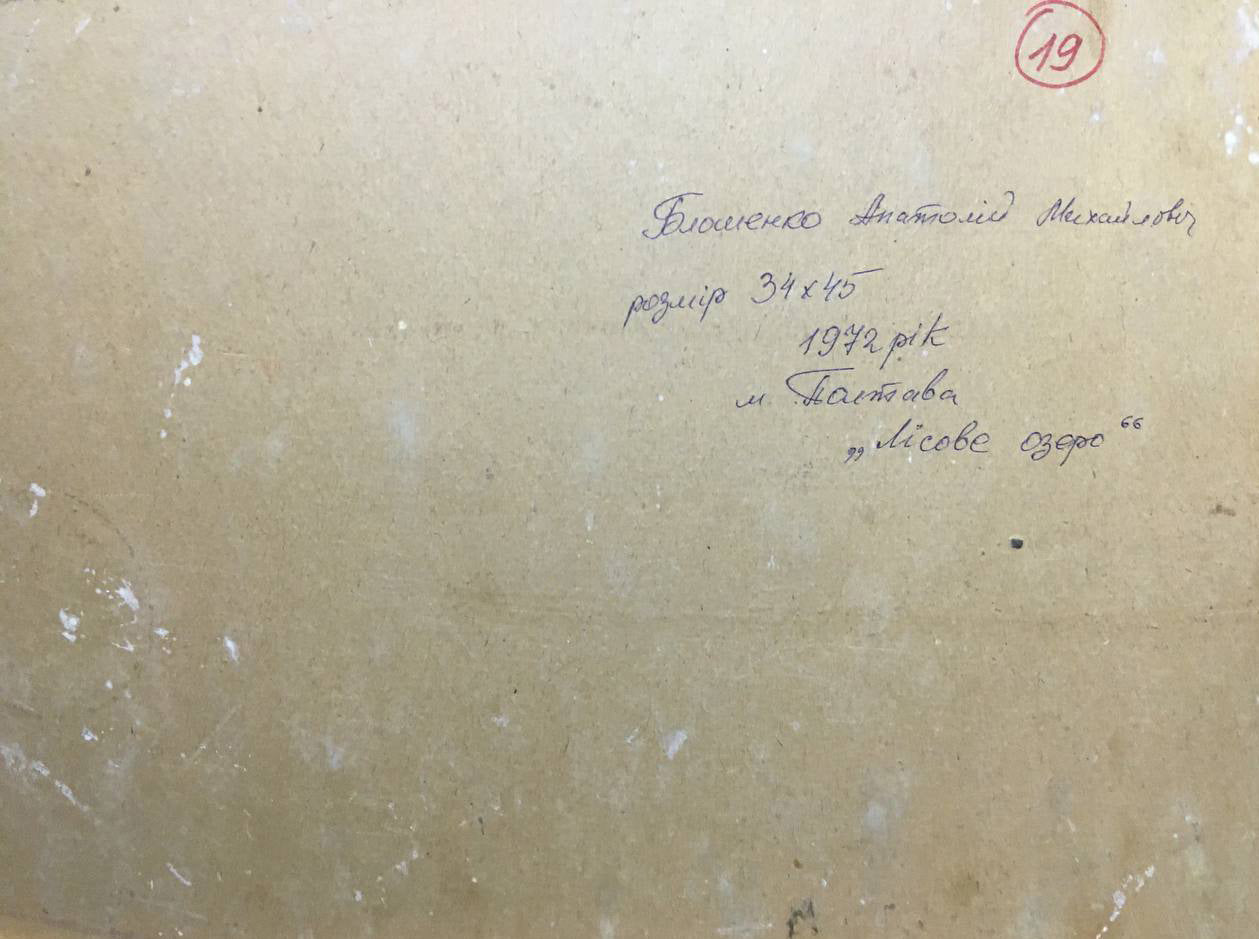 19
Блошенко Анатолій Михайлович
розмір 34х45
1972 рік
м. Полтава
„Лісове озеро“